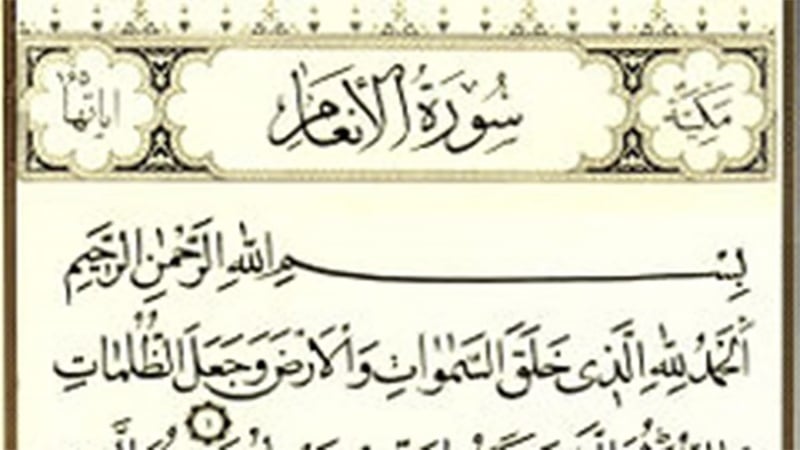 مكية
سورة الأنعام
اياتها ١٦٥
بِسْمِ اللهِ الرَّحْمٰنِ الرَّحِيمِ
اَلْحَمْدُ لِلّٰهِ الَّذِى خَلَقَ السَّمٰوَاتِ وَالْاَرْضَ وَجَعَلَ الظُّلُمَاتِ
١